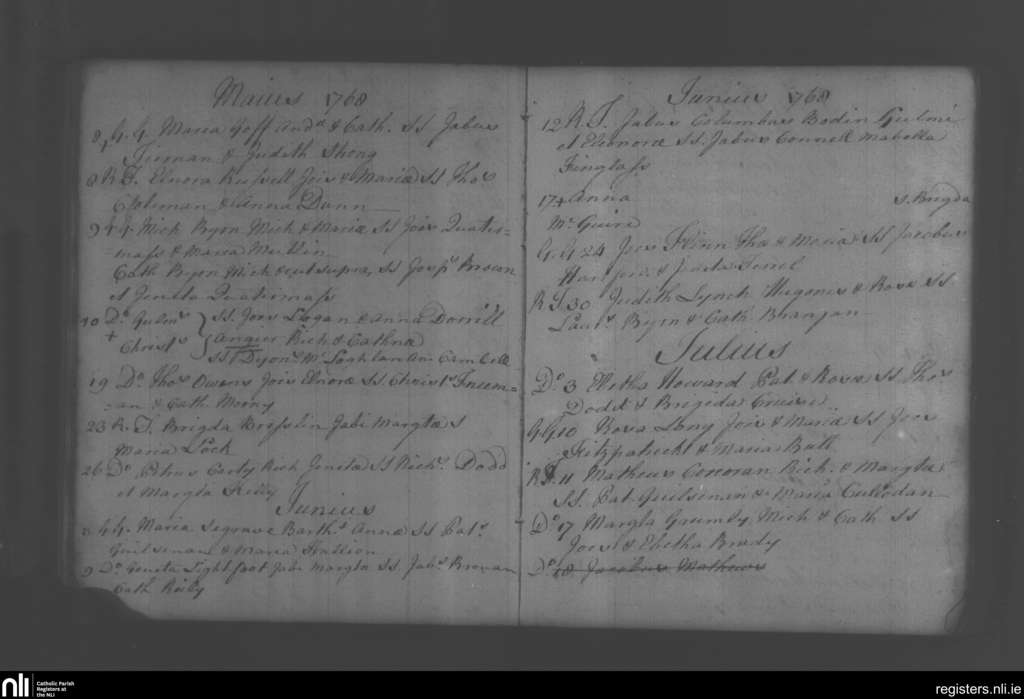 Maius 1768
8 G. G. Maria Goff And & Cath. SS Jabus
Tiernan & Judith Shong
8 R. T. Elnora Russell Jois & Maria SS Thos
Coleman & Anna Dunn
9 G. G. Mich Byrn Mich & Maria SS Jois Quater=
=mass & Maria Mullin
Cath Byrn Mich & ut supra, SS Josph Brown
et Jeneta Quatermass
10 Do Gulms SS. Jois Logan & Anna Dorrill
+ Christs Angier Rich & Cathna
SS Dyon Mc Laghlan Ann Cambell
19 Do Thos Owens Jois Elnora SS Christr Freem=
=an & Cath Morny
23 R. T. Brigda Brisslin Jabi Margta S
Maria Lock
26 Do Petrus Early Rich Jeneta SS Richd Dodd
et Margta Reily
Junius
G. G. Maria Segrave Barths Anna SS Pats
Guilsenan & Maria Stallion
9 Do Jeneta Lightfoot Jabi Margta SS. Jabs Brenan
Cath Reily
Junius 1768
12 R. T. Jabus Columbus Bodin Gulmi
et Elenora SS. Jabus Connell Mabella
Finglass
17 + Anna S. Brigda
Mc Guire
G. G. 24 Jois Flinn Tho & Maria SS Jacobus
& Jneta
R. T. 30 Judith Lynch Hugonis & Rosa SS
Laur Byrn & Cath Bhangan
Julius
Do 3 Eletha Howard Pat & Rosa SS Thos
Dodd & Brigida Cruise
G. G. 10 Rosa Long Jois & Maria SS Jois
Fitzpatrick & Maria Ball
R. T. 11 Matheus Conoran Rich. & Margta
SS. Pat Guilsenan & Maria Cullodan
Do 17 Margta Grumly Mich & Cath SS
Jois & Eletha Brady
Do 18 Jacobus Mathews
nli Catholic Parish
Registers at
the NLI
registers.nli.ie